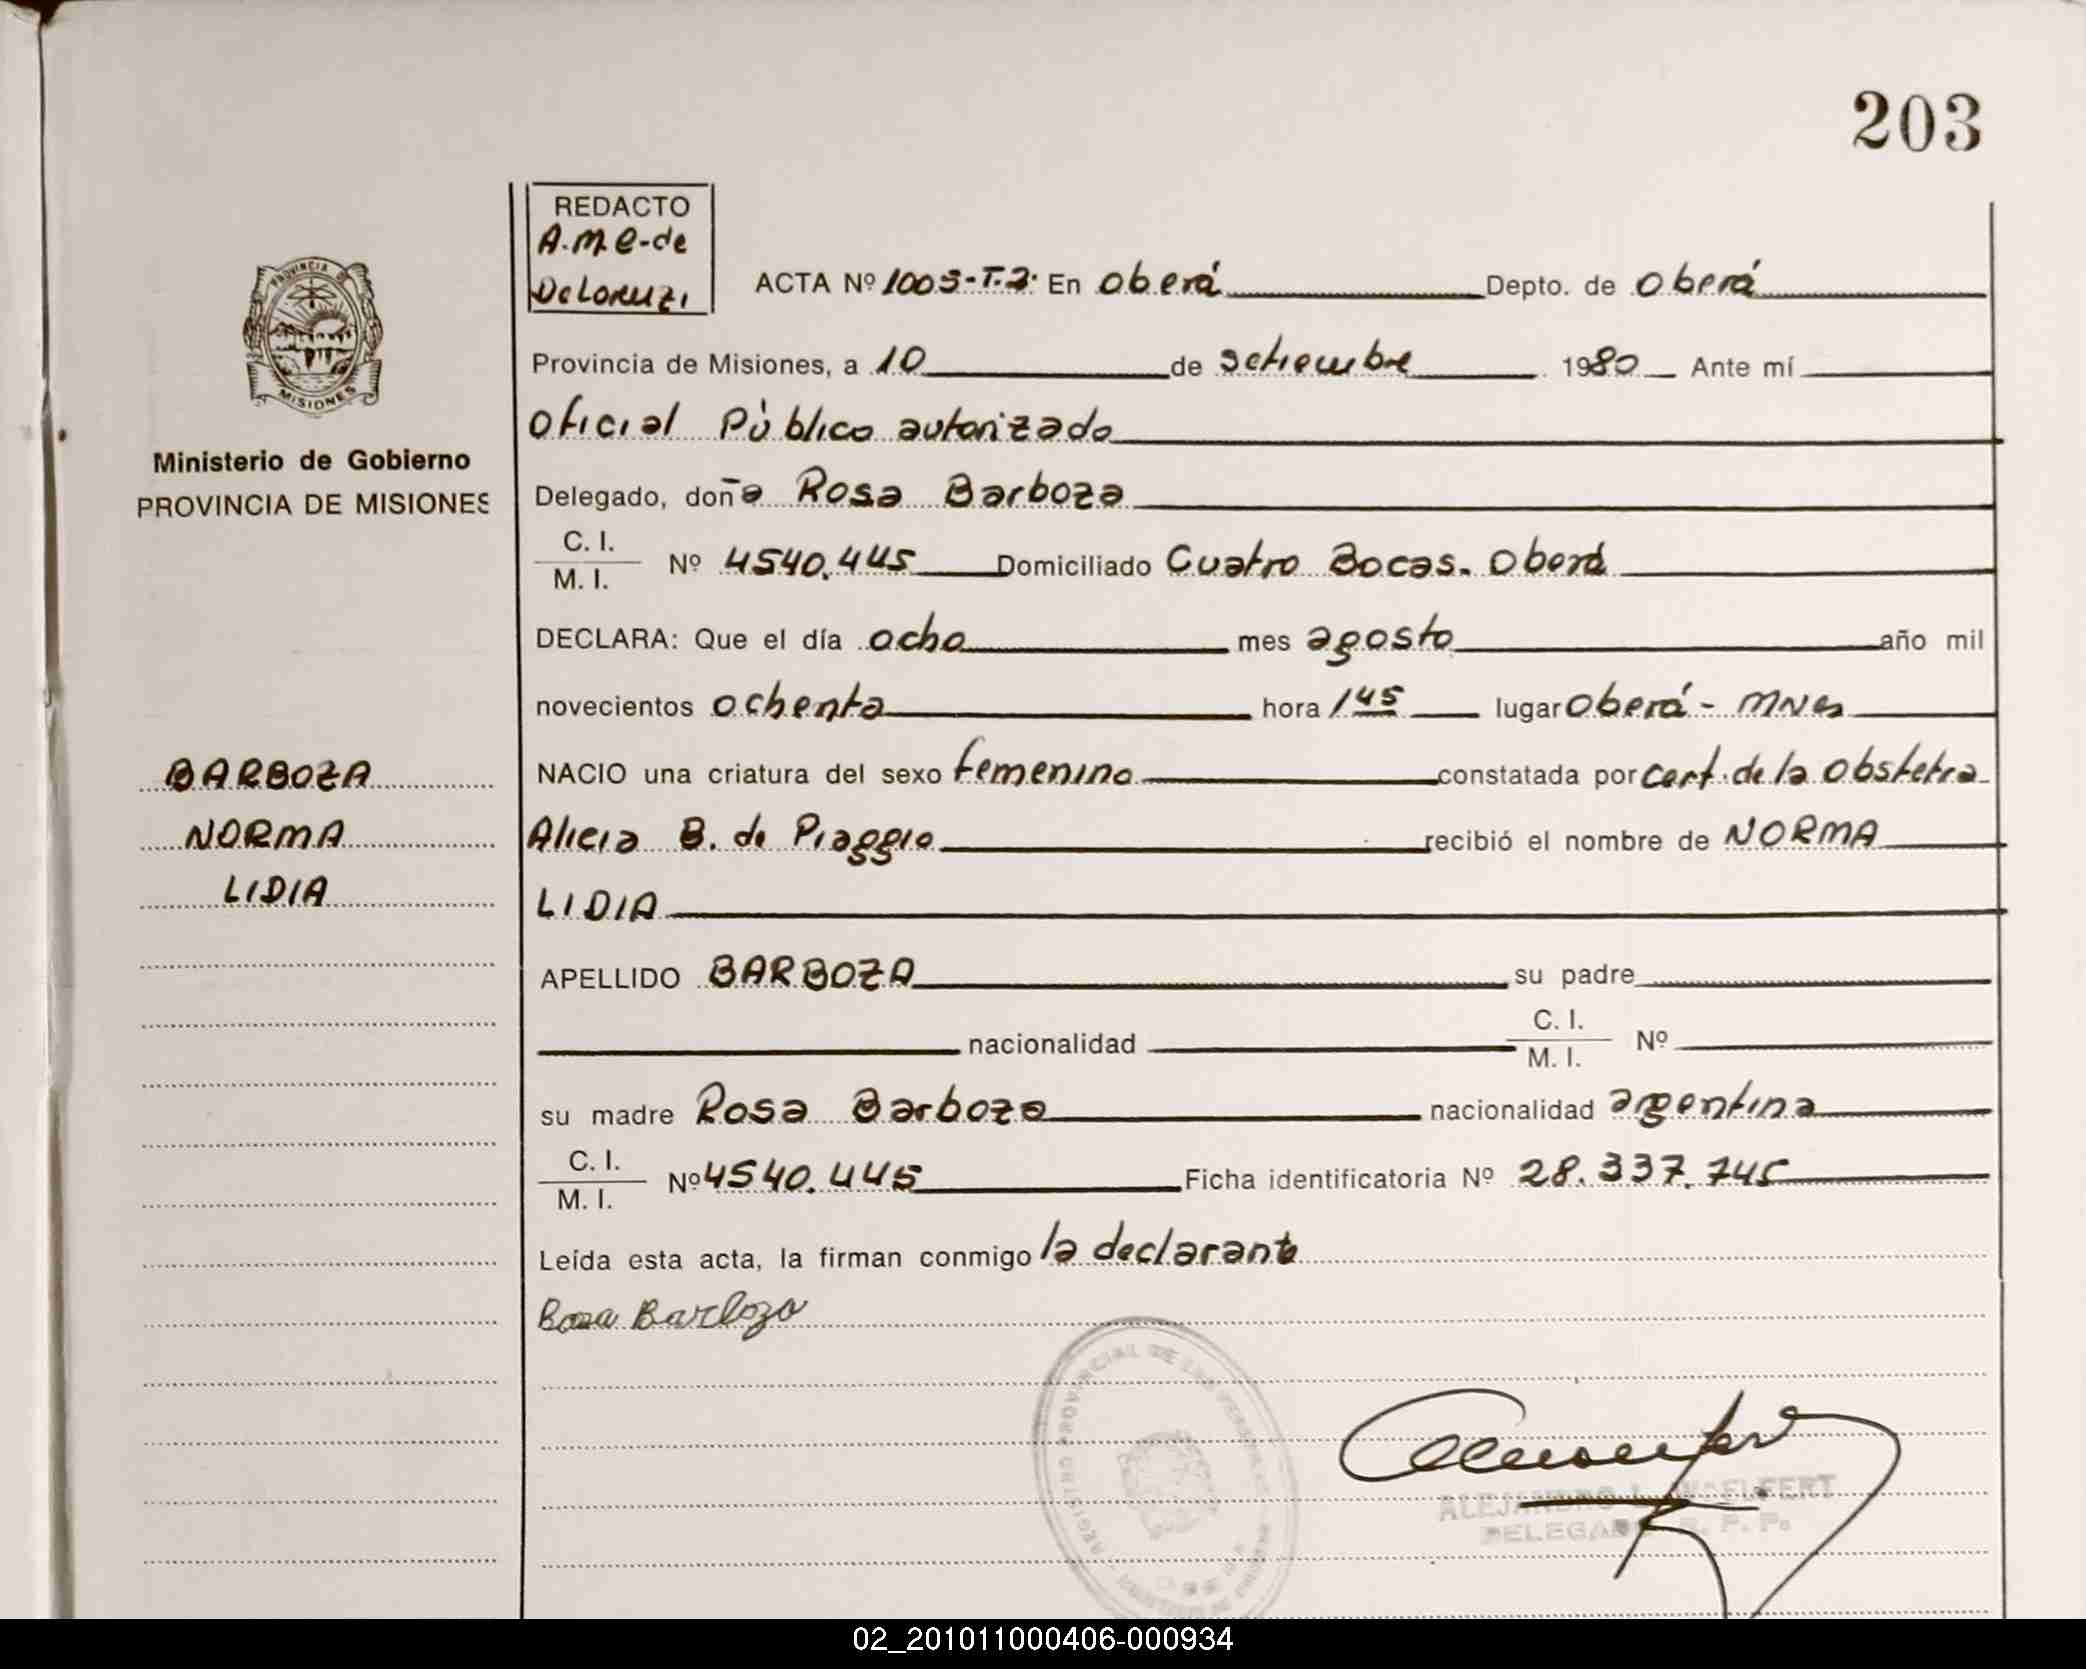 203
REDACTO
A.M.E-de
DeLoruzi
ACTA Nº 1005-T.3. En Oberá Depto. de Oberá
Provincia de Misiones, a 10 de setiembre 1980 Ante mí
Oficial Público autorizado
Ministerio de Gobierno
PROVINCIA DE MISIONES
Delegado, doña Rosa Barboza
C. I.
M. I. Nº 4540.445 Domiciliado Cuatro Bocas. Oberá
DECLARA: Que el día ocho mes agosto año mil
novecientos ochenta hora 1 45 lugar Oberá - Mnes
BARBOZA
NORMA
LIDIA
NACIO una criatura del sexo femenino constatada por cert. de la obstetra
Alicia B. de Piaggio recibió el nombre de NORMA
LIDIA
APELLIDO BARBOZA su padre
nacionalidad C. I.
M. I. Nº
su madre Rosa Barboza nacionalidad argentina
C. I.
M. I. Nº 4540.445 Ficha identificatoria Nº 28.337.745
Leída esta acta, la firman conmigo la declarante
Rosa Barbozo
REGISTRO PROVINCIAL DE LAS PERSONAS
ALEJANDRO
DELEGADO R. P. P.
PROVINCIA DE
MISIONES
02_201011000406-000934